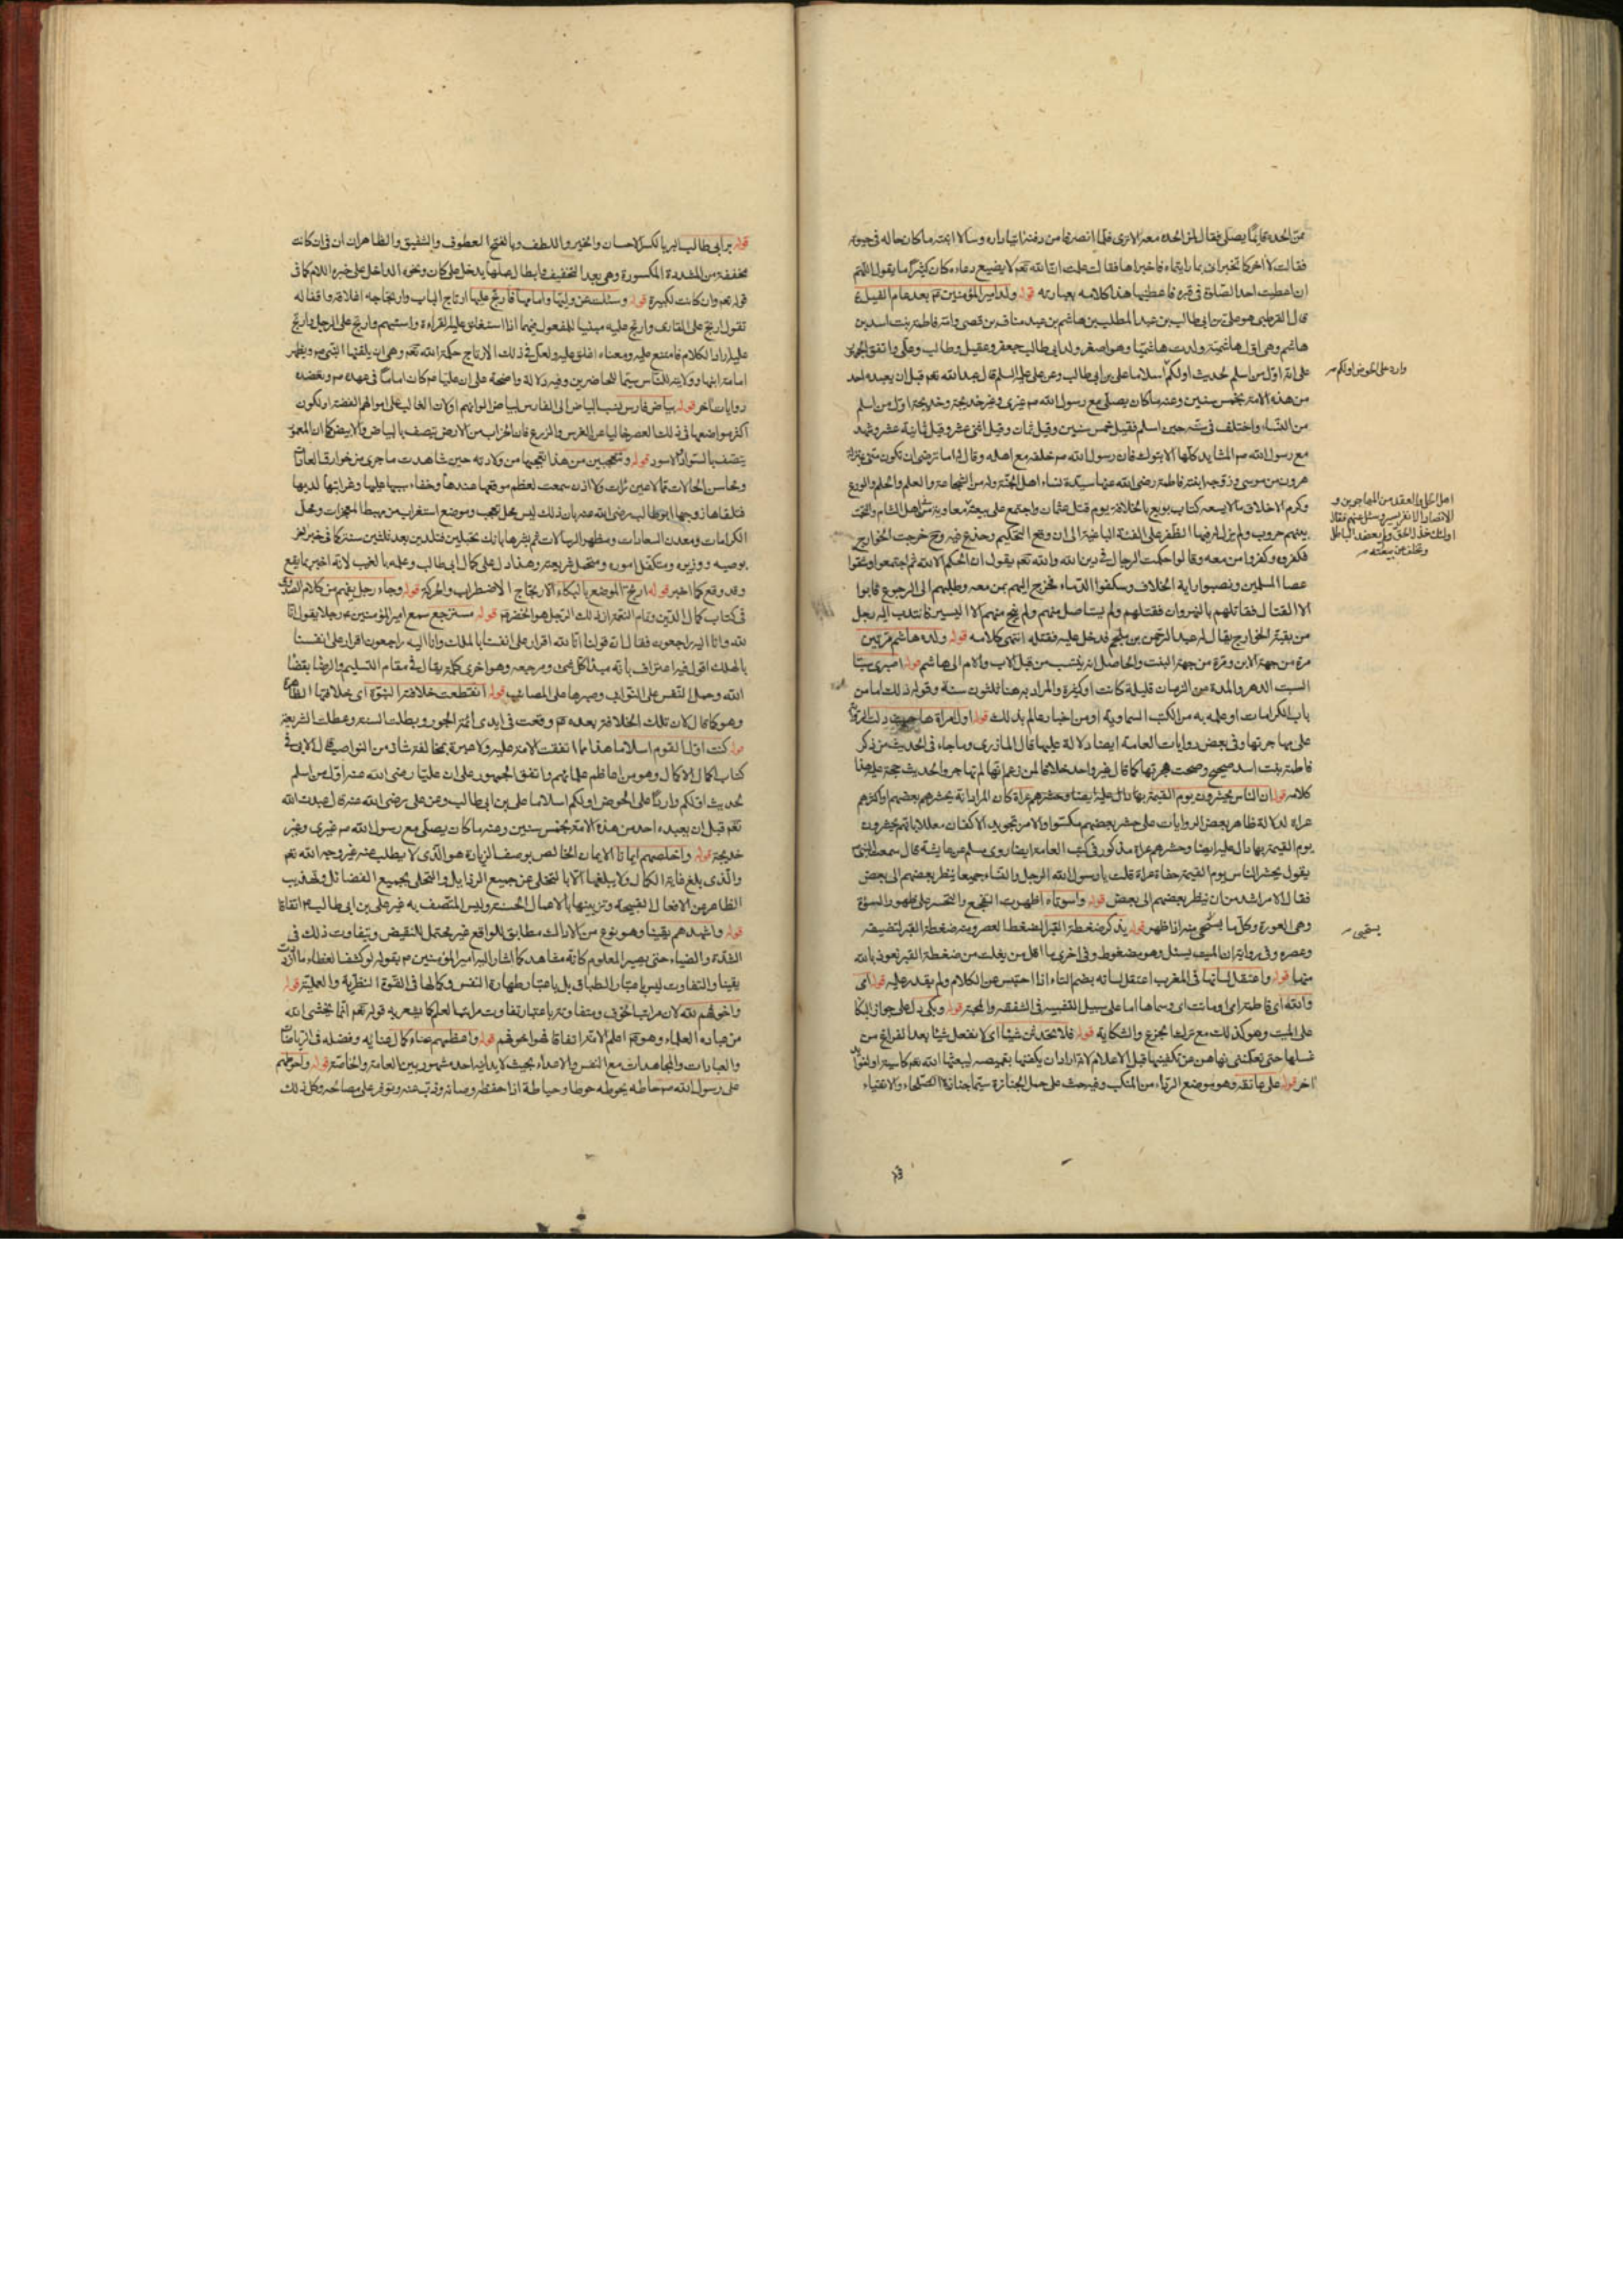 عن الحدة قائما يصلى فقال الحده معه الا ترى فلما انصرفا من دفنه اتيا داره وسالا ابنته ما كان حاله فى حيوته
فقالت لا اخبركما تخبرانى بما رايتماه فاخبراها فقالت علمت ان الله تعم لا يضيع دعاءه كان كثيرا ما يقول اللهم
ان اعطيت احدا الصلوة فى قبره فاعطنيها هذا كلامه بعبارته قوله ولد امير المؤمنين عم بعد عام الفيل
قال القرطبى هو على بن ابى طالب بن عبد المطلب بن هاشم بن عبد مناف بن قصى وامه فاطمة بنت اسد بن
هاشم وهى اول هاشمية ولدت هاشميا وهو اصغر ولد ابى طالب جعفر وعقيل وطالب وعلى واتفق الجمهور
على انه اول من اسلم لحديث اولكم اسلاما على بن ابى طالب وعن على عليه السلم قال عبدت الله تعم قبل ان يعبده احد
من هذه الامة بخمس سنين وعنه ما كان يصلى مع رسول الله صم غيرى وغير خديجة وخديجة اول من اسلم
من النساء واختلف فى سنه حين اسلم فقيل خمس سنين وقيل ثمان وقيل اثنى عشر وقيل ثمانية عشر وشهد
مع رسول الله صم المشاهد كلها الا تبوك فان رسول الله صم خلفه مع اهله وقال اما ترضى ان تكون منى بمنزلة
هرون من موسى وزوجه ابنته فاطمة رضى الله عنها سيدة نساء اهل الجنة وله من الشجاعة والعلم والحلم والورع
وكرم الاخلاق ما لا يسعه كتاب بويع بالخلافة يوم قتل عثمان واجتمع على بيعته معاوية اهل الشام
بينهم حروب ولم يزل له فيها الظفر على الفئة الباغية الى ان وقع التحكيم وخدع فيه وح خرجت الخوارج
فكفروه وكفروا من معه وقالوا حكمت الرجال فى دين الله والله تعم يقول ان الحكم الا لله ثم اجتمعوا وشقوا
عصا المسلمين ونصبوا راية الخلاف وسفكوا الدماء فخرج اليهم بمن معه وطلبهم الى الرجوع فابوا
الا القتال فقاتلهم بالنهروان فقتلهم واستاصل منهم ولم ينج منهم الا اليسير فانتدب اليه رجل
من بقية الخوارج يقال له عبد الرحمن بن ملجم فدخل عليه فقتله انتهى كلامه قوله ولده هاشم مرتين
مرة من جهة الابن ومرة من جهة البنت والحاصل انه ينتسب من قبل الاب والام الى هاشم قوله اصبرى سبتا
السبت الدهر والمدة من الزمان قليلة كانت او كثيرة والمراد به هنا ثلثون سنة وقوله ذلك اما من
باب الكرامات او علمه به من الكتب السماوية او من اخبار عالم بذلك قوله اول امراة هاجرت دلت
على مهاجرتها وفى بعض روايات العامة ايضا دلالة عليها قال المازرى وما جاء فى الحديث من ذكر
فاطمة بنت اسد صحيح وصحت هجرتها كما قال غير واحد خلافا لمن زعم انها لم تهاجر والحديث حجة عليه هذا
كلامه قوله ان الناس يحشرون يوم القيمة بها دال عليه ايضا وحشرهم عراة كان المراد انه يحشرهم بعضهم او اكثرهم
عراة لدلالة ظاهر بعض الروايات على حشر بعضهم مكسوا والامر بتجويد الاكفان معللا بانهم يحشرون
يوم القيمة بها دال عليه ايضا وحشرهم عراة مذكور فى كتب العامة ايضا روى مسلم عن عايشة قال سمعت النبى
يقول يحشر الناس يوم القيمة حفاة عراة قلت يا رسول الله الرجل والنساء جميعا ينظر بعضهم الى بعض
فقال الامر اشد من ان ينظر بعضهم الى بعض قوله واسوتاه اظهرت التفجع والتحسر على ظهور السوءة
وهى العورة وكل ما يستحى منه اذا ظهر قوله يذكر ضغطة القبر الضغط العصر ومنه ضغطة القبر لتضييقه
وعصره وفى رواية ان الميت يسئل وهو مضغوط وفى اخرى ما اقل من يفلت من ضغطة القبر نعوذ بالله
منها قوله واعتقل لسانها فى المغرب اعتقل لسانه بضم التاء اذا احتبس عن الكلام ولم يقدر عليه قوله امى
والله اى فاطمة امى او ماتت امى وسماها اما على سبيل التشبيه فى الشفقة والمحبة قوله وبكى دل على جواز البكاء
على الميت وهو كذلك مع ترك الجزع والشكاية قوله فلا تحدثن شيئا اى لا تفعلن شيئا بعد الفراغ من
غسلها حتى تعلمننى نهاهن عن تكفينها قبل الاعلام لانه اراد ان يكفنها بقميصه ليبعثها الله تعم كاسية
اخر قوله على عاتقه وهو موضع الرداء من المنكب وفيه حث على حمل الجنازة سيما جنازة الصلحاء والاتقياء
واردا على الحوض اولكم صح
اهل الحل والعقد من المهاجرين و
الانصار الا نفر يسير وسئل عنهم فقال
اولئك خذلوا الحق ولم يعضدوا الباطل
وتخلف عن بيعته صح
يستحيى صح
قوله بر ابى طالب البر بالكسر الاحسان والخير واللطف وبالفتح العطوف والشفيق والظاهر ان ان فى ان كانت
مخففة من المشددة المكسورة وهى بعد التخفيف وابطال عملها يدخل على كان ونحوه الداخل على خبره اللام كما فى
قوله تعم وان كانت لكبيرة قوله وسئلت عن وليها وامامها فارتج عليها ارتاج الباب وارتجاجه اغلاقه واقفاله
تقول ارتج على القارى وارتج عليه مبنيا للمفعول فيهما اذا استغلق عليه القراءة واستبهم وارتج على الرجل وارتج
عليه اراد الكلام فامتنع عليه ومعناه اغلق عليه ولعل فى ذلك الارتاج حكمة الله تعم وهى ان يلقنها النبى صم ويظهر
امامة ابنها وولايته للناس سيما للحاضرين وفيه دلالة واضحة على ان عليا عم كان اماما فى عهده صم ويعضده
روايات اخر قوله بياض فارس نسب البياض الى الفارس لبياض الوانهم او لان الغالب على اموالهم الفضة او لكون
اكثر مواضعها فى ذلك العصر خاليا عن الغرس والزرع فان الخراب من الارض يتصف بالبياض والابيض كما ان المعمور
يتصف بالسواد والاسود قوله وتتعجبين من هذا تعجبها من ولادته حين شاهدت ما جرى من خوارق العادات
ومحاسن الحالات مما لا عين رات ولا اذن سمعت لعظم موقعها عندها وخفاء سببها عليها وغرابتها لديها
فتلقاها زوجها ابو طالب رضى الله عنه بان ذلك ليس محل تعجب وموضع استغراب من مهبط المعجزات ومحل
الكرامات ومعدن السعادات ومظهر الرسالات ثم بشرها بانك تحبلين فتلدين بعد ثلثين سنة كما فى خبر اخر
بوصيه ووزيره ومتكفل اموره ومتحمل شريعته وهذا دل على كمال ابى طالب وعلمه بالغيب لانه اخبر بما يقع
وقد وقع كما اخبر قوله ارتج الموضع بالبكاء الارتجاج الاضطراب والحركة قوله وجاء رجل يفهم من كلام الصدوق
فى كتاب كمال الدين وتمام النعمة ان ذلك الرجل هو الخضر عم قوله مسترجع سمع امير المؤمنين عم رجلا يقول انا
لله وانا اليه راجعون فقال ان قولنا انا لله اقرار على انفسنا بالملك وانا اليه راجعون اقرار على انفسنا
بالهلك اقول فيه اعتراف بانه مبدأ كل شئ ومرجعه وهو احرى كلمة يقال فى مقام التسليم والرضا بقضاء
الله وحمل النفس على النوائب وصبرها على المصائب قوله انقطعت خلافة النبوة اى خلافتها الظاهرة
وهو كما قال لان تلك الخلافة بعده عم وقعت فى ايدى ائمة الجور وبطلت السنة وعطلت الشريعة
قوله كنت اول القوم اسلاما هذا مما اتفقت الامة عليه ولا عبرة بمخالفة شاذ من النواصب قال الابى فى
كتاب اكمال الاكمال وهو من اعاظم علمائهم واتفق الجمهور على ان عليا رضى الله عنه اول من اسلم
لحديث اولكم واردا على الحوض اولكم اسلاما على بن ابى طالب وعن على رضى الله عنه قال عبدت الله
تعم قبل ان يعبده احد من هذه الامة بخمس سنين وعنه ما كان يصلى مع رسول الله صم غيرى وغير
خديجة قوله واخلصهم ايمانا الايمان الخالص بوصف الزيادة هو الذى لا يطلب عنه غير وجه الله تعم
والذى بلغ غاية الكمال ولا يبلغها الا بالتخلى عن جميع الرذايل والتحلى بجميع الفضائل وتهذيب
الظاهر عن الافعال القبيحة وتزيينها بالاعمال الحسنة وليس المتصف به غير على بن ابى طالب عم اتفاقا
قوله واشدهم يقينا وهو نوع من الادراك مطابق للواقع غير محتمل للنقيض ويتفاوت ذلك فى
الشدة والضياء حتى يصير المعلوم كانه مشاهد كما اشار اليه امير المؤمنين عم بقوله لو كشف الغطاء ما ازددت
يقينا والتفاوت ليس باعتبار الطباق بل باعتبار طهارة النفس وكمالها فى القوة النظرية والعملية قوله
واخوفهم لله لان مراتب الخوف متفاوتة باعتبار تفاوت مراتب العلم كما يشعر به قوله تعم انما يخشى الله
من عباده العلماء وهو عم اعلم الامة اتفاقا فهو اخوفهم قوله واعظمهم عناء كمال عنائه وفضله فى الرياضات
والعبادات والمجاهدات مع النفس والاعداء بحيث لا يدانيه احد مشهور بين العامة والخاصة قوله واحوطهم
على رسول الله صم حاطه يحوطه حوطا وحياطة اذا حفظه وصانه وذب عنه وتوفر على مصالحه وكل ذلك